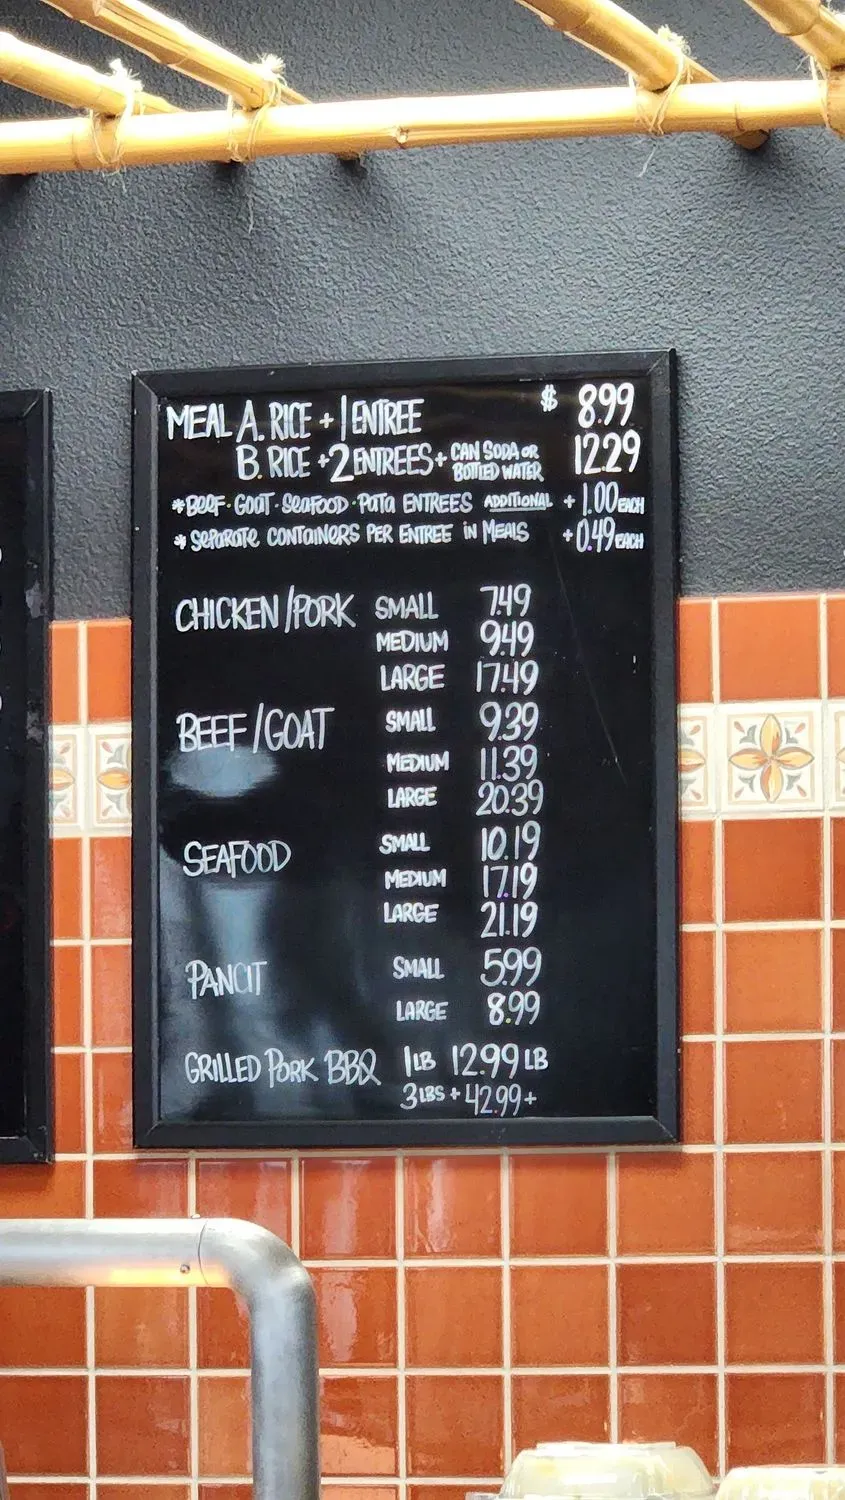 MEAL A. RICE + 1 ENTREE $ 8.99
B. RICE + 2 ENTREES + CAN SODA OR BOTTLED WATER 12.29
*BEEF · GOAT · SEAFOOD · PATA ENTREES ADDITIONAL + 1.00 EACH
* SEPARATE CONTAINERS PER ENTREE IN MEALS +0.49 EACH
CHICKEN/PORK SMALL 7.49
MEDIUM 9.49
LARGE 17.49
BEEF/GOAT SMALL 9.39
MEDIUM 11.39
LARGE 20.39
SEAFOOD SMALL 10.19
MEDIUM 17.19
LARGE 21.19
PANCIT SMALL 5.99
LARGE 8.99
GRILLED PORK BBQ 1 LB 12.99 LB
3 LBS + 42.99+